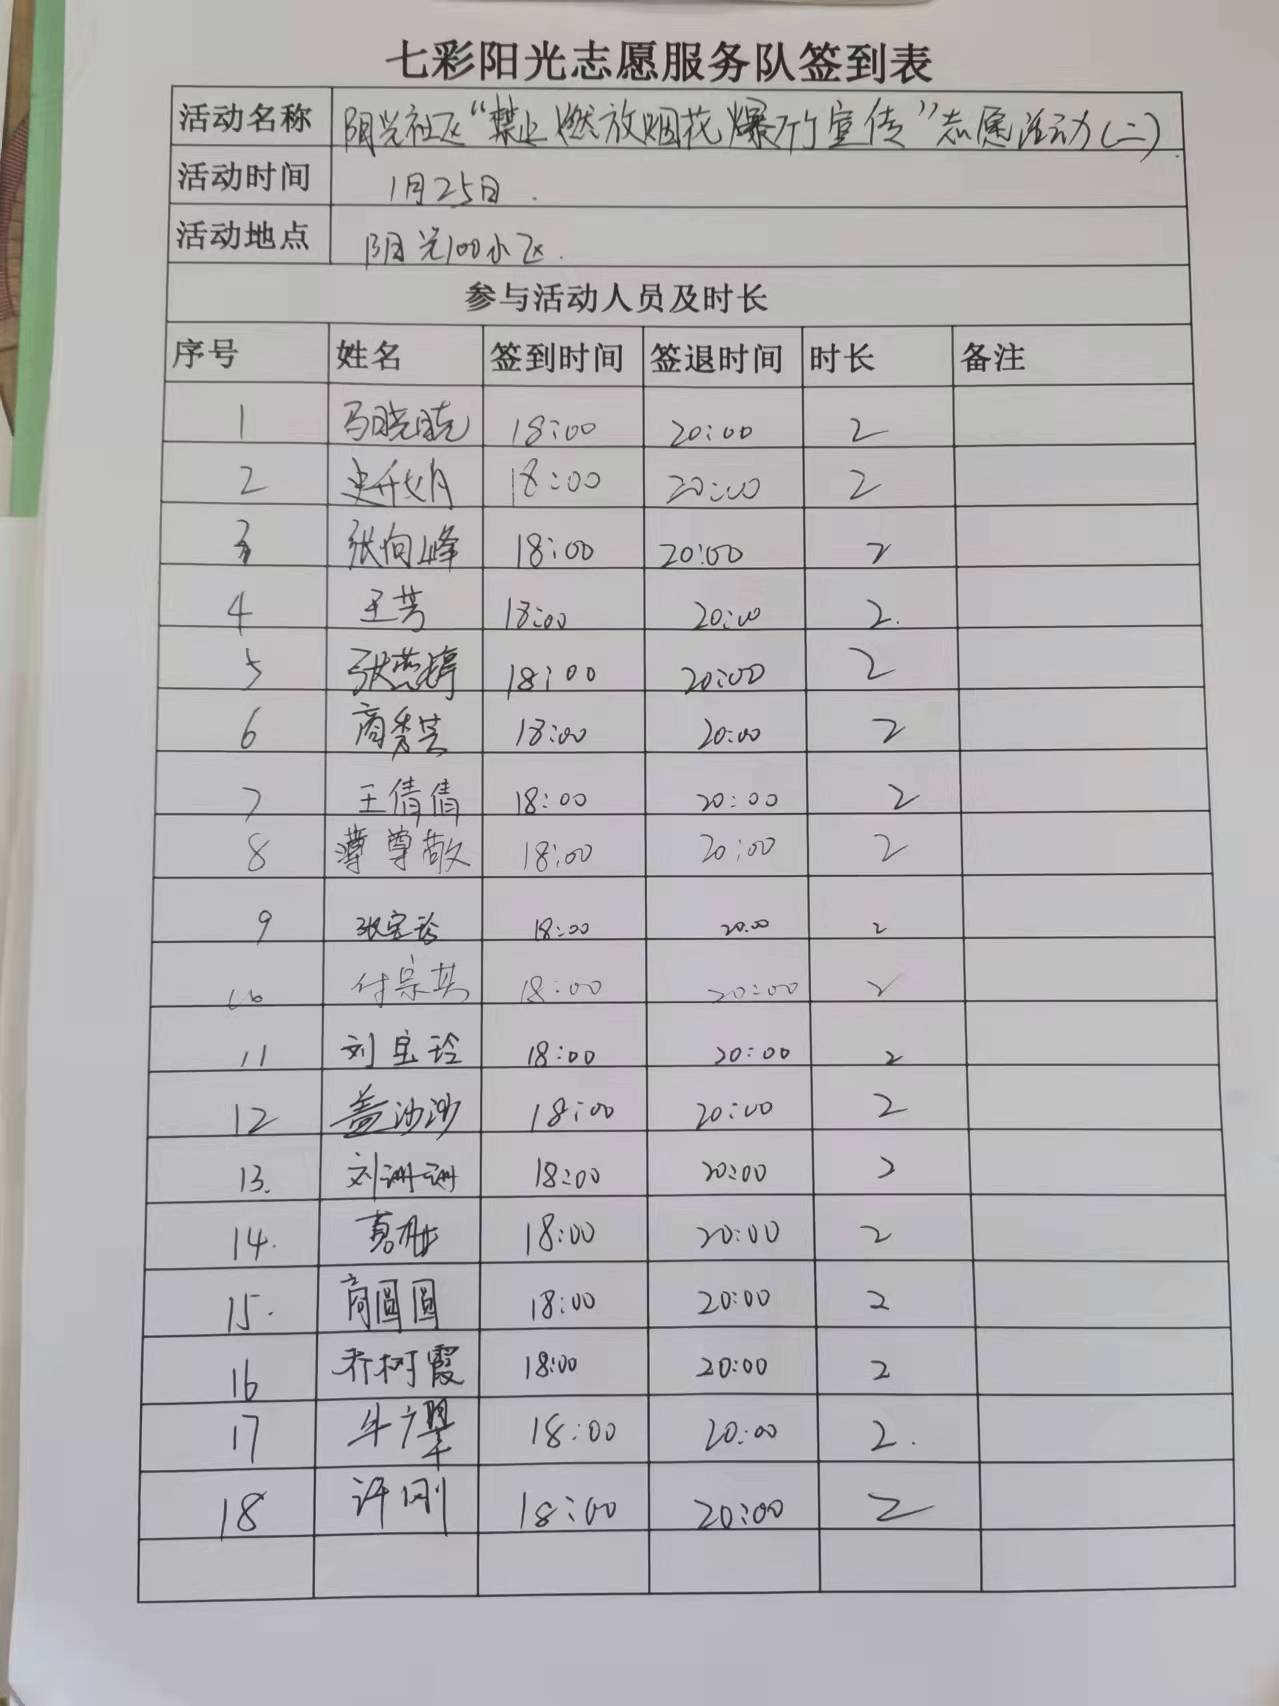 七彩阳光志愿服务队签到表
活动名称 阳光社区“禁止燃放烟花爆竹宣传”志愿活动(二)
活动时间 1月25日.
活动地点 阳光100小区.
参与活动人员及时长
序号 姓名 签到时间 签退时间 时长 备注
1 马晓晓 18:00 20:00 2
2 18:00 20:00 2
3 张向峰 18:00 20:00 2
4 王芳 18:00 20:00 2.
5 张燕婷 18:00 20:00 2
6 商秀芸 18:00 20:00 2
7 王倩倩 18:00 20:00 2
8 尊敬 18:00 20:00 2
9 张宝玲 18:00 20:00 2
10 付宗英 18:00 20:00 2
11 刘宝玲 18:00 20:00 2
12 盖沙沙 18:00 20:00 2
13. 刘洲洲 18:00 20:00 2
14. 18:00 20:00 2
15. 商圆圆 18:00 20:00 2
16 乔树霞 18:00 20:00 2
17 牛广翠 18:00 20:00 2.
18 许刚 18:00 20:00 2